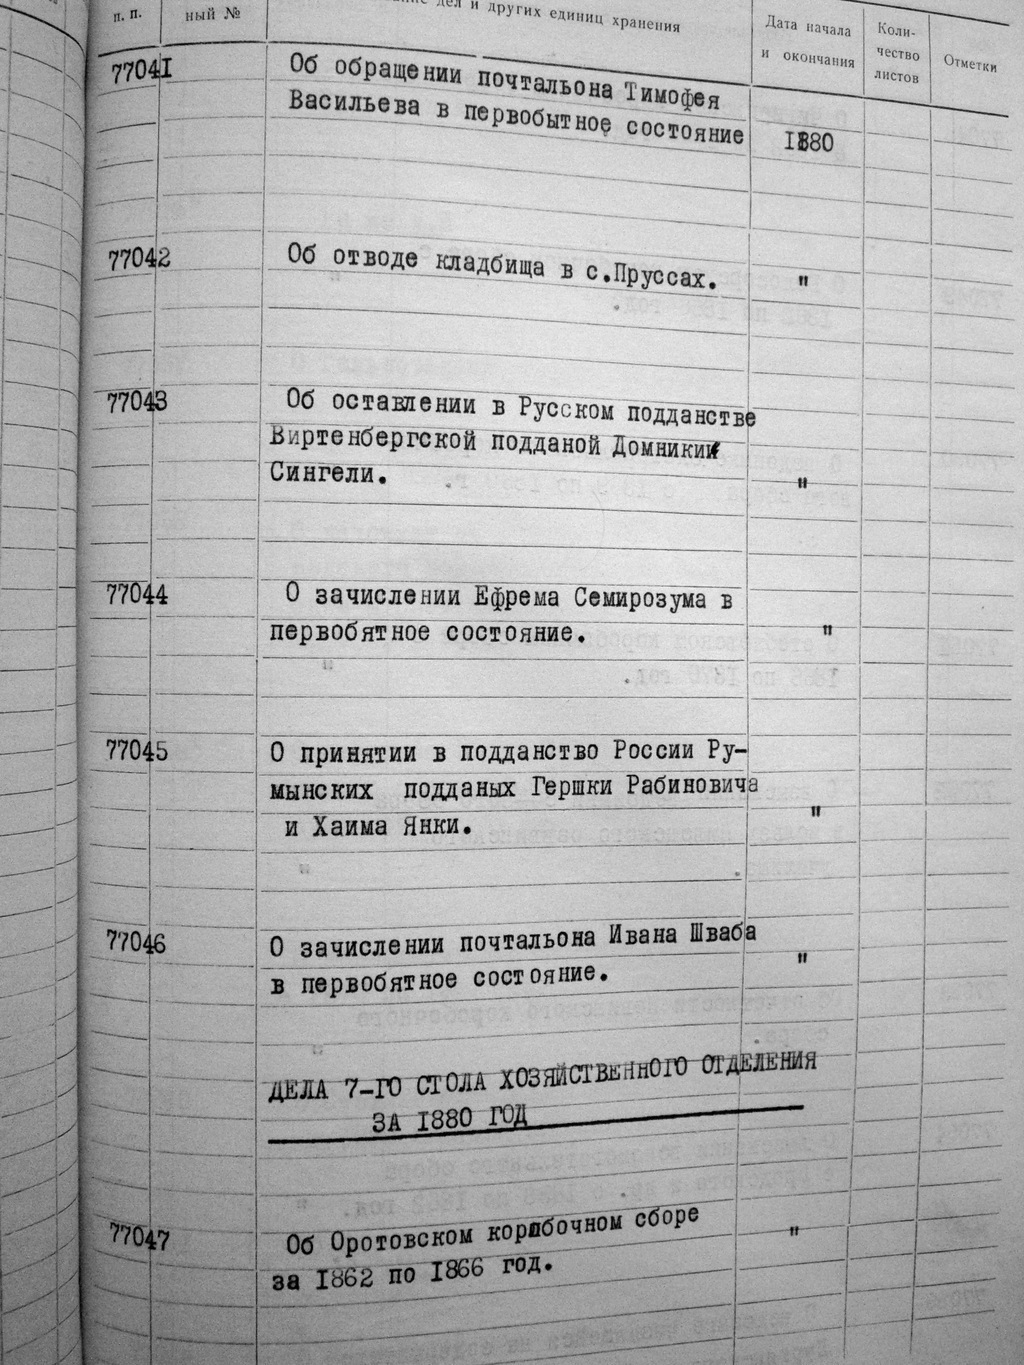 п. п.
ный №
дел и других единиц хранения
Дата начала
и окончания
Коли-
чество
листов
Отметки
77041
Об обращении почтальона Тимофея
Васильева в первобытное состояние
1880
77042
Об отводе кладбища в с.Пруссах.
"
77043
Об оставлении в Русском подданстве
Виртенбергской подданой Домникии
Сингели.
"
77044
О зачислении Ефрема Семирозума в
первобятное состояние.
"
77045
О принятии в подданство России Ру-
мынских подданых Гершки Рабиновича
и Хаима Янки.
"
77046
О зачислении почтальона Ивана Шваба
в первобятное состояние.
"
ДЕЛА 7-ГО СТОЛА ХОЗЯЙСТВЕННОГО ОТДЕЛЕНИЯ
ЗА 1880 ГОД
77047
Об Оротовском коробочном сборе
за 1862 по 1866 год.
"